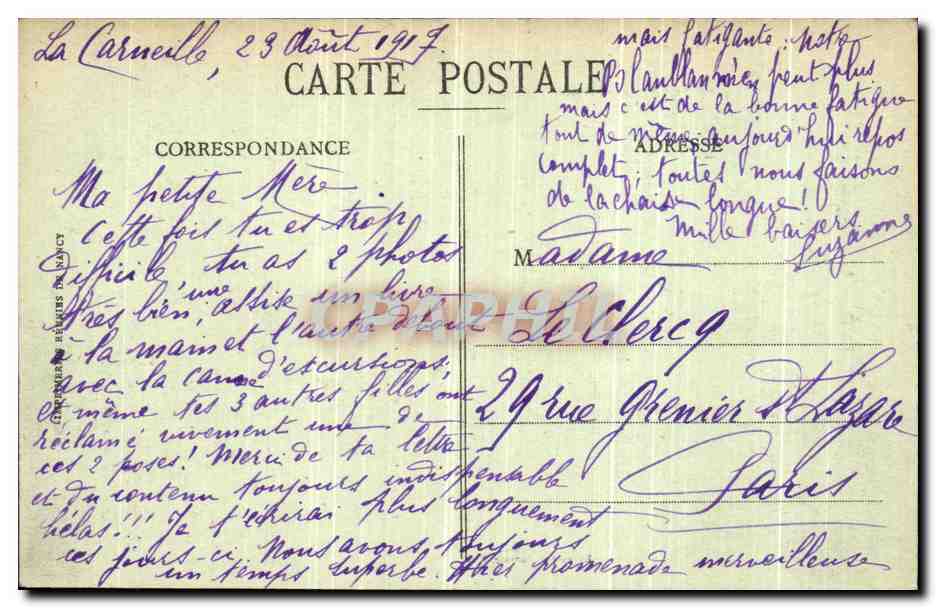 La Carneille, 23 Août 1917.
CARTE POSTALE
CORRESPONDANCE
ADRESSE
Ma petite Mère
Cette fois tu es trop
difficile, tu as 2 photos
très bien, une assise un livre
à la main et l'autre debout
avec la canne d'excursions,
et même tes 3 autres filles ont
réclamé vivement une de
ces 2 poses! Merci de ta lettre
et du contenu toujours indispensable
hélas!!! Je t'écrirai plus longuement
ces jours-ci. Nous avons toujours
un temps superbe. Hier promenade merveilleuse
mais fatigante: notre
n'en peut plus
mais c'est de la bonne fatigue
tout de même aujourd'hui repos
complet; toutes nous faisons
de la chaise longue!
Mille baisers
Suzanne
Madame
Le Clercq
29 rue Grenier St Lazare
Paris
IMPRIMERIES REUNIES DE NANCY
CPAPHIL